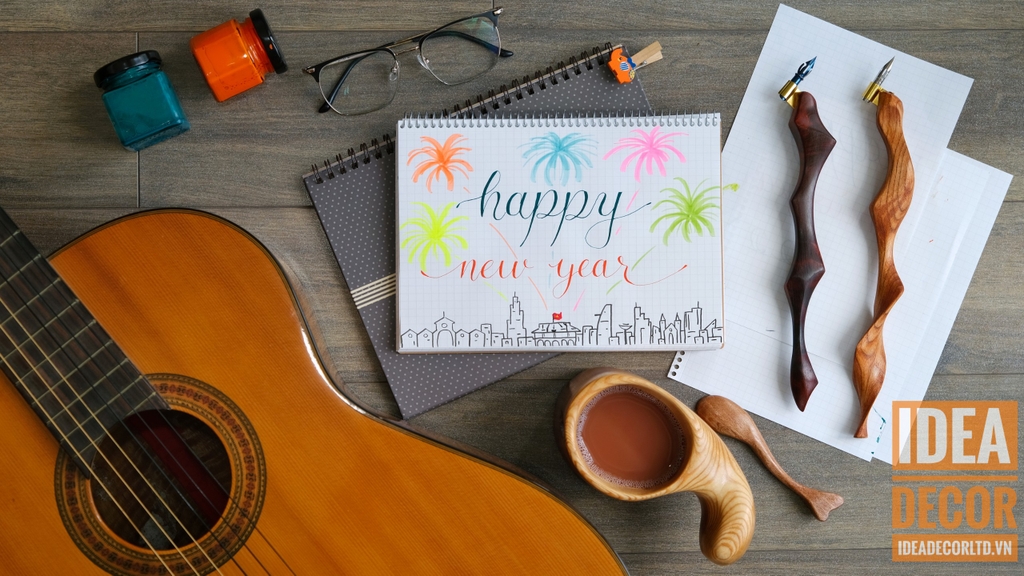 happy
new year
IDEA
DECOR
IDEADECORLTD.VN